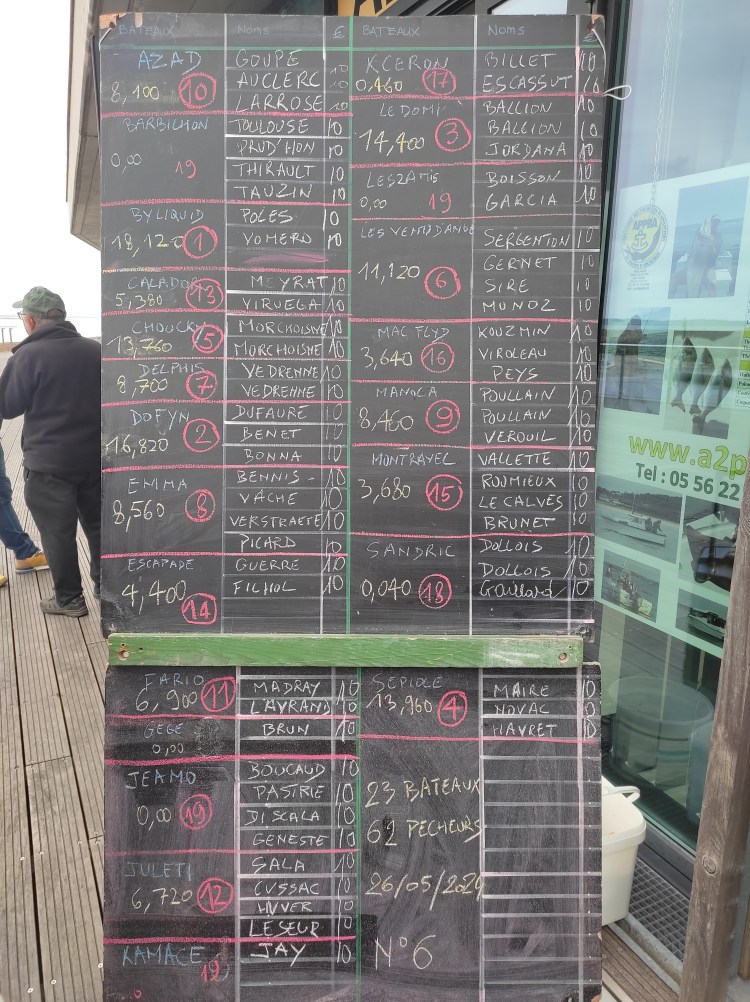 BATEAUX NOMS € BATEAUX NOMS €
AZAD GOUPÉ 10
8,100 10 AUCLERC 10
LARROSE 10
BARBICHON TOULOUSE 10
PRUD'HON 10
0,00 19 THIRAULT 10
TAUZIN 10
BYLIQUID POLES 10
18,120 1 YOMERO 10
CALADOR MEYRAT 10
5,380 13 VIRUEGA 10
CHOUCRI MORCHOISNE 10
13,760 5 MORCHOISNE 10
DELPHIS VEDRENNE 10
8,700 7 VEDRENNE 10
DOFYN DUFAURE 10
16,820 2 BENET 10
BONNA 10
EMMA BENNIS 10
8,560 8 VACHE 10
VERSTRAETE 10
PICARD 10
ESCAPADE GUERRE 10
4,400 14 FILHOL 10
KCERON BILLET 10
0,460 17 ESCASSUT 10
LE DOMI BALLION 10
14,400 3 BALLION 10
JORDANA 10
LES 2 AMIS BOISSON 10
0,00 19 GARCIA 10
LES VENTS D'ANGE SERGENTION 10
GERNET 10
11,120 6 SIRE 10
MUNOZ 10
MAC FLYD KOUZMIN 10
3,640 16 VIROLEAU 10
PEYS 10
MANOLA POULLAIN 10
8,460 9 POULLAIN 10
VEROUIL 10
MONTRAVEL VALLETTE 10
3,680 15 ROUMIEUX 10
LE CALVES 10
BRUNET 10
SANDRIC DOLLOIS 10
DOLLOIS 10
0,040 18 Gaillard 10
FARIO MADRAY 10
6,900 11 LAYRAND 10
GEGE BRUN 10
0,00
JEAMO BOUCAUD 10
PASTRIE 10
0,00 19 DI SCALA 10
GENESTE 10
JULETI SALA 10
6,720 12 CUSSAC 10
HUVER 10
LESEUR 10
RAMAGE JAY 10
19
SEPIOLE MAIRE 10
13,960 4 NOVAC 10
HAVRET 10
23 BATEAUX
62 PECHEURS
26/05/2024
N°6
APPBA
www.a2p
Tel : 05 56 22